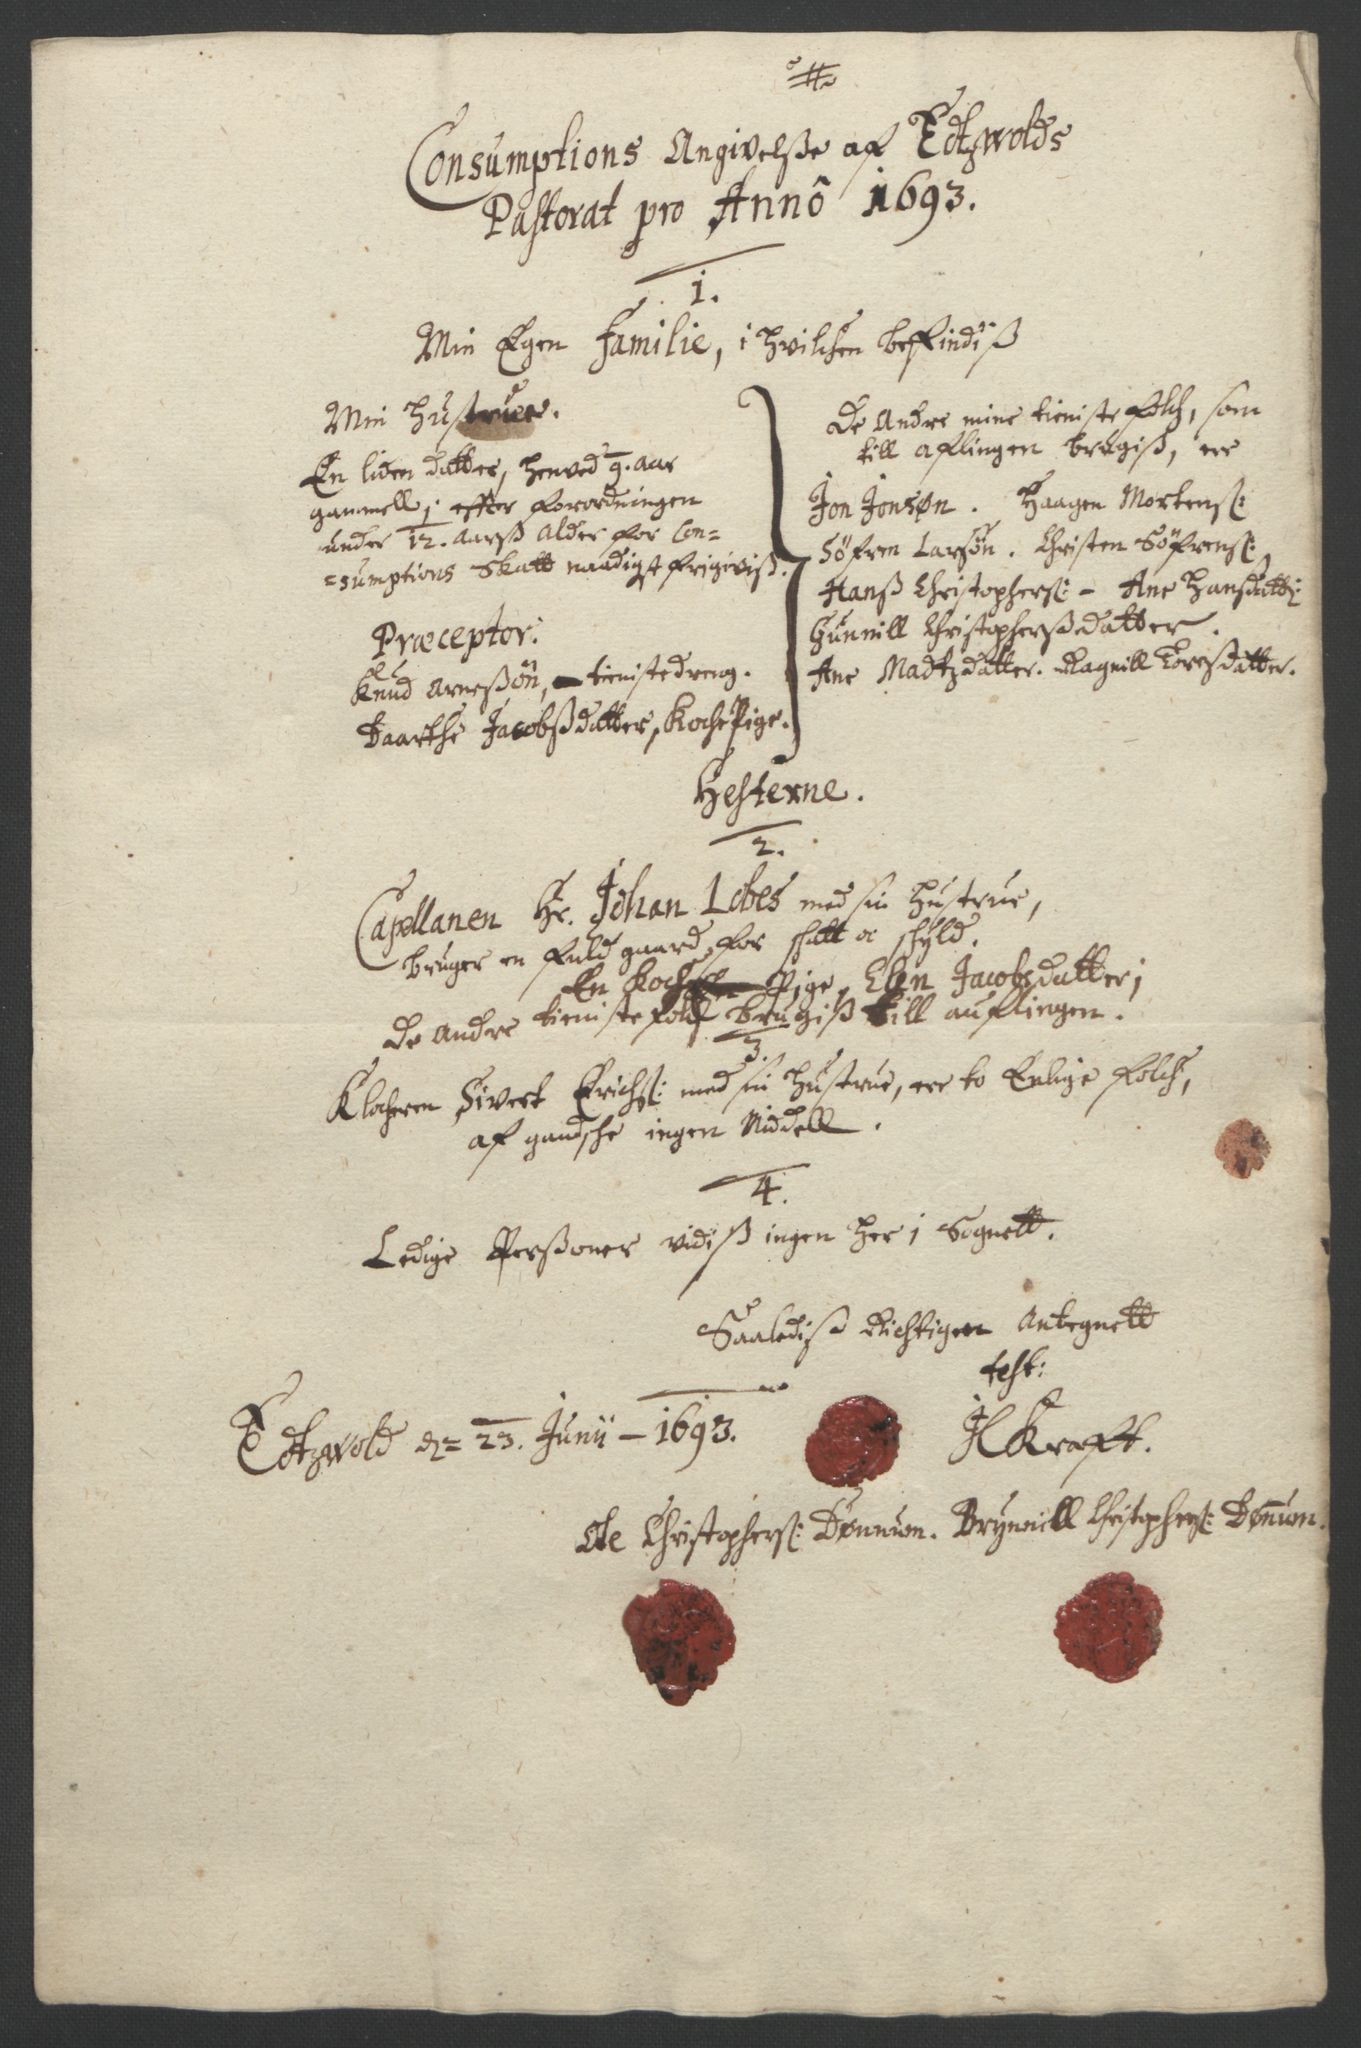 Consumptions Angivelße af Edtzwolds
Pastorat pro Annô 1693.
1.
Min Egen Familie, i hvilchen befindiß
Min Hustrue.
En liden datter, henved 9. aar
gammell; effter forordningen
under 12. aarß alder for Con=
=sumptions Skatt naadigst frigiviß.
Præceptor.
Knud Arneßön, tienistedreng.
Daarthe Jacobßdatter, KochePige.
De Andre mine tieniste folch, som
till aflingen brugiß, ere
Jon Jonsøn. Haagen Mortens:
Söfren Larsön. Christen Söfrens:
Hanß Christophers: - Ane Hansdatt:
Gunnill Christopherßdatter.
Ane Madtzdatter. Ragnill Toresdatter.
Hesterne.
2.
Capellanen Hr. Johan Lobes med sin Hustrue,
bruger en fuld gaard for skatt oc skyld.
En Koche Pige, Elen Jacobsdatter;
De andre tieniste folch brugiß till auflingen.
3.
Klocheren Sivert Erichs: med sin Hustrue, ere to Enlige folch,
af gandsche ingen Middell.
4.
Ledige Perßoner vidiß ingen her i Sognett.
Saalediß Richtigen Antegnett
test:
Edtzwold dn 23. Junii - 1693.
JL Kraft.
Ole Christophers: Dønnum. Brynnill Christophers: Dønnum.